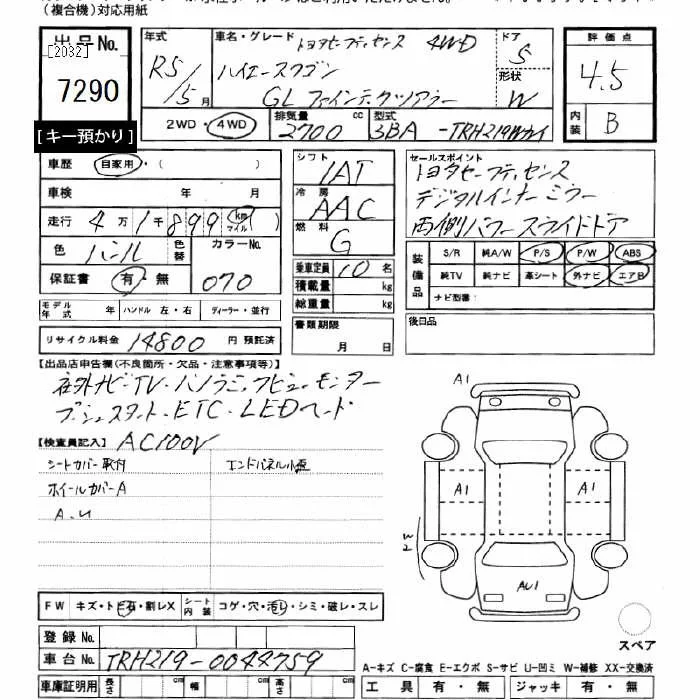 (複合機)対応用紙
出品No.
[2032]
7290
[キー預かり]
年式
R5/5月
車名・グレード
トヨタセーフティセンス 4WD
ハイエースワゴン
GL ファインテックツアラー
ドア
5
形状
W
2WD・4WD
排気量
2700 cc
型式
3BA-TRH219Wカイ
評価点
4.5
内装
B
車歴 自家用・( )
車検 年 月
走行 4万1千899 km マイル
色 パール 色替
カラーNo.
070
保証書 有・無
シフト
IAT
冷房
AAC
燃料
G
乗車定員 10 名
積載量 kg
総重量 kg
セールスポイント
トヨタセーフティセンス
デジタルインナーミラー
両側パワースライドドア
装備品
S/R 純A/W P/S P/W ABS
純TV 純ナビ 革シート 外ナビ エアB
ナビ型番:
モデル年式 ハンドル 左・右 ディーラー・並行
書類期限
月 日
後日品
リサイクル料金 14800 円 預託済
【出品店申告欄(不良箇所・欠品・注意事項等)】
社外ナビTV・パノラミックビューモニター
プッシュスタート・ETC・LEDヘッド
AC100V
【検査員記入】
シートカバー取付
エンドパネル小歪
ホイールカバーA
A.U
A1
A1
A1
W2
AU1
FW キズ・トビ石・割レX
シート内装 コゲ・穴・汚レ・シミ・破レ・スレ
登録No.
車台No. TRH219-0044759
車庫証明用 長さ cm 幅 cm 高さ cm
スペア
A-キズ C-腐食 E-エクボ S-サビ U-凹ミ W-補修 XX-交換済
工具 有・無 ジャッキ 有・無